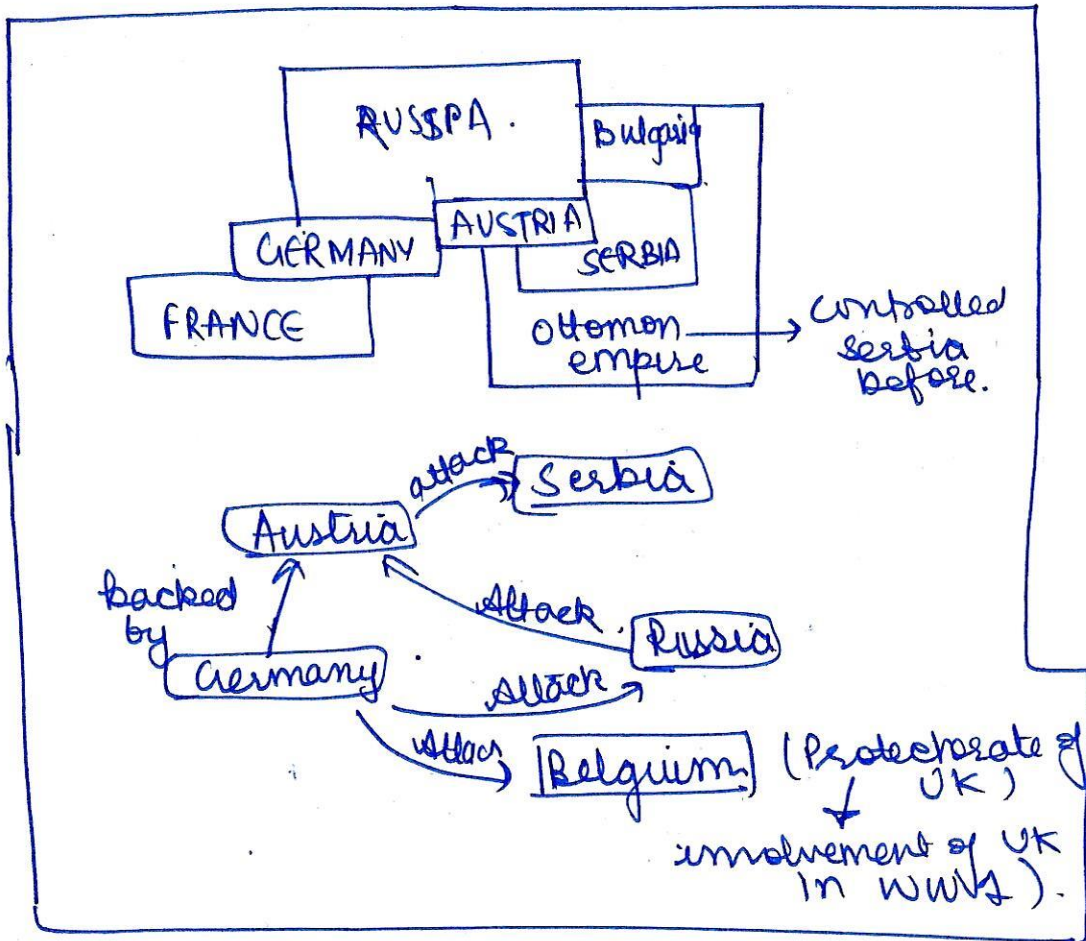 RUSSIA.
Bulgaria
AUSTRIA
GERMANY
SERBIA
FRANCE
Ottomon
empire
controlled
serbia
before.
attack
Serbia
Austria
backed
by
Attack
Russia
Germany
Attack
Attack
Belguim
(Protectorate of
UK)
involvement of UK
in WW1).